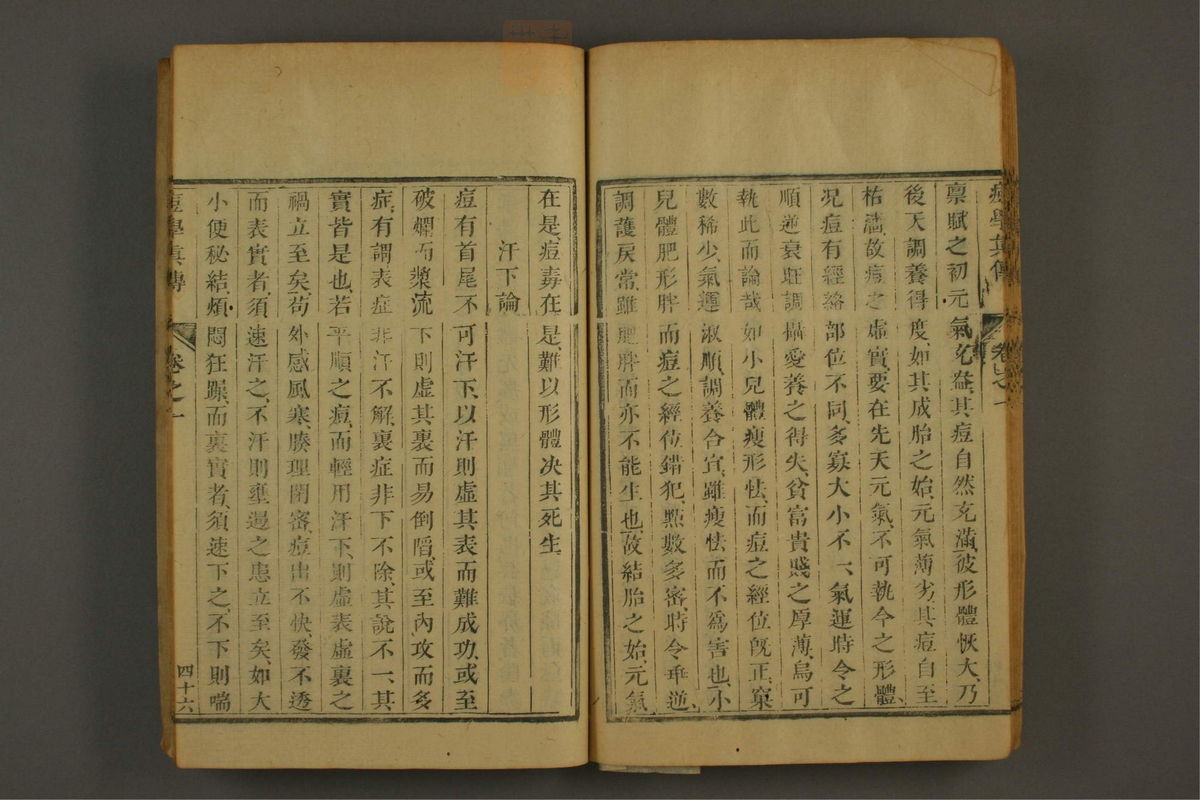 痘學真傳 卷之一
稟賦之初元氣充益、其痘自然充滿、彼形體恢大、乃
後天調養得度、如其成胎之始、元氣薄劣、其痘自至
枯濇、故痘之虛實、要在先天元氣、不可執今之形體、
况痘有經絡部位不同、多寡大小不一、氣運時令之
順逆衰旺、調攝愛養之得失、貧富貴賤之厚薄、烏可
執此而論哉、如小兒體瘦形怯、而痘之經位旣正、窠
數稀少、氣運淑順、調養合宜、雖瘦怯而不爲害也、小
兒體肥形胖、而痘之經位錯犯、點數多密、時令乖逆、
調護戾常、雖肥胖而亦不能生也、故結胎之始、元氣
在是、痘毒在是、難以形體决其死生
汗下論
痘有首尾不可汗下、以汗則虛其表而難成功、或至
破爛而漿流、下則虛其裏而易倒陷、或至內攻而多
症、有謂表症非汗不解、裏症非下不除、其說不一、其
實皆是也、若平順之痘、而輕用汗下、則虛表虛裏之
禍立至矣、苟外感風寒、腠理閉密、痘出不快、發不透
而表實者、須速汗之、不汗則壅遏之患立至矣、如大
小便秘結、煩悶狂躁、而裏實者、須速下之、不下則喘
痘學真傳 卷之一 四十六